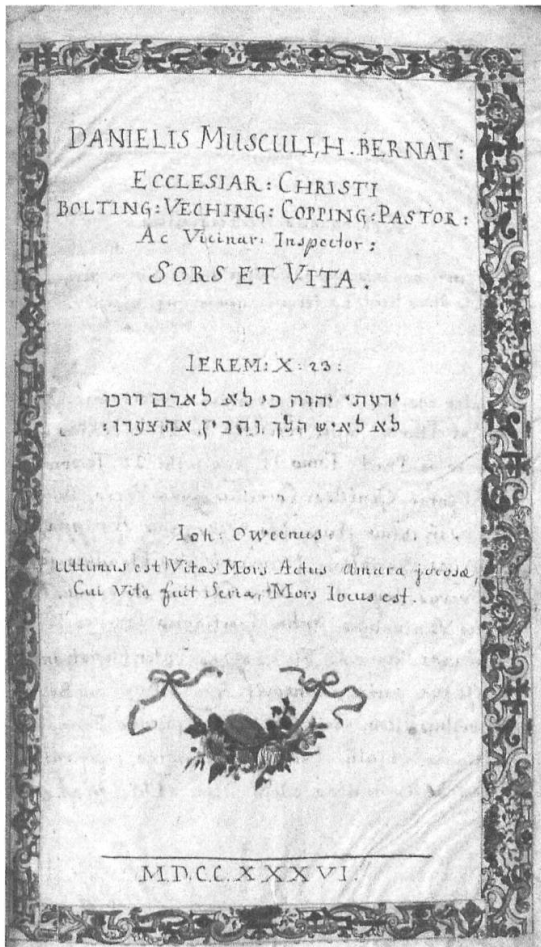 DANIELIS MUSCULI, H. BERNAT:
ECCLESIAR: CHRISTI
BOLTING: VECHING: COPPING: PASTOR:
Ac Vicinar: Inspector:
SORS ET VITA.
IEREM: X. 23:
ידעתי יהוה כי לא לאדם דרכו
לא לאיש הלך והכין את צעדו:
Ioh: Owenus
Ultimus est Vitæ Mors Actus amara jocosæ,
Cui Vita fuit Seria, Mors Iocus est.
M.D.C.C.X.X.X.VI.